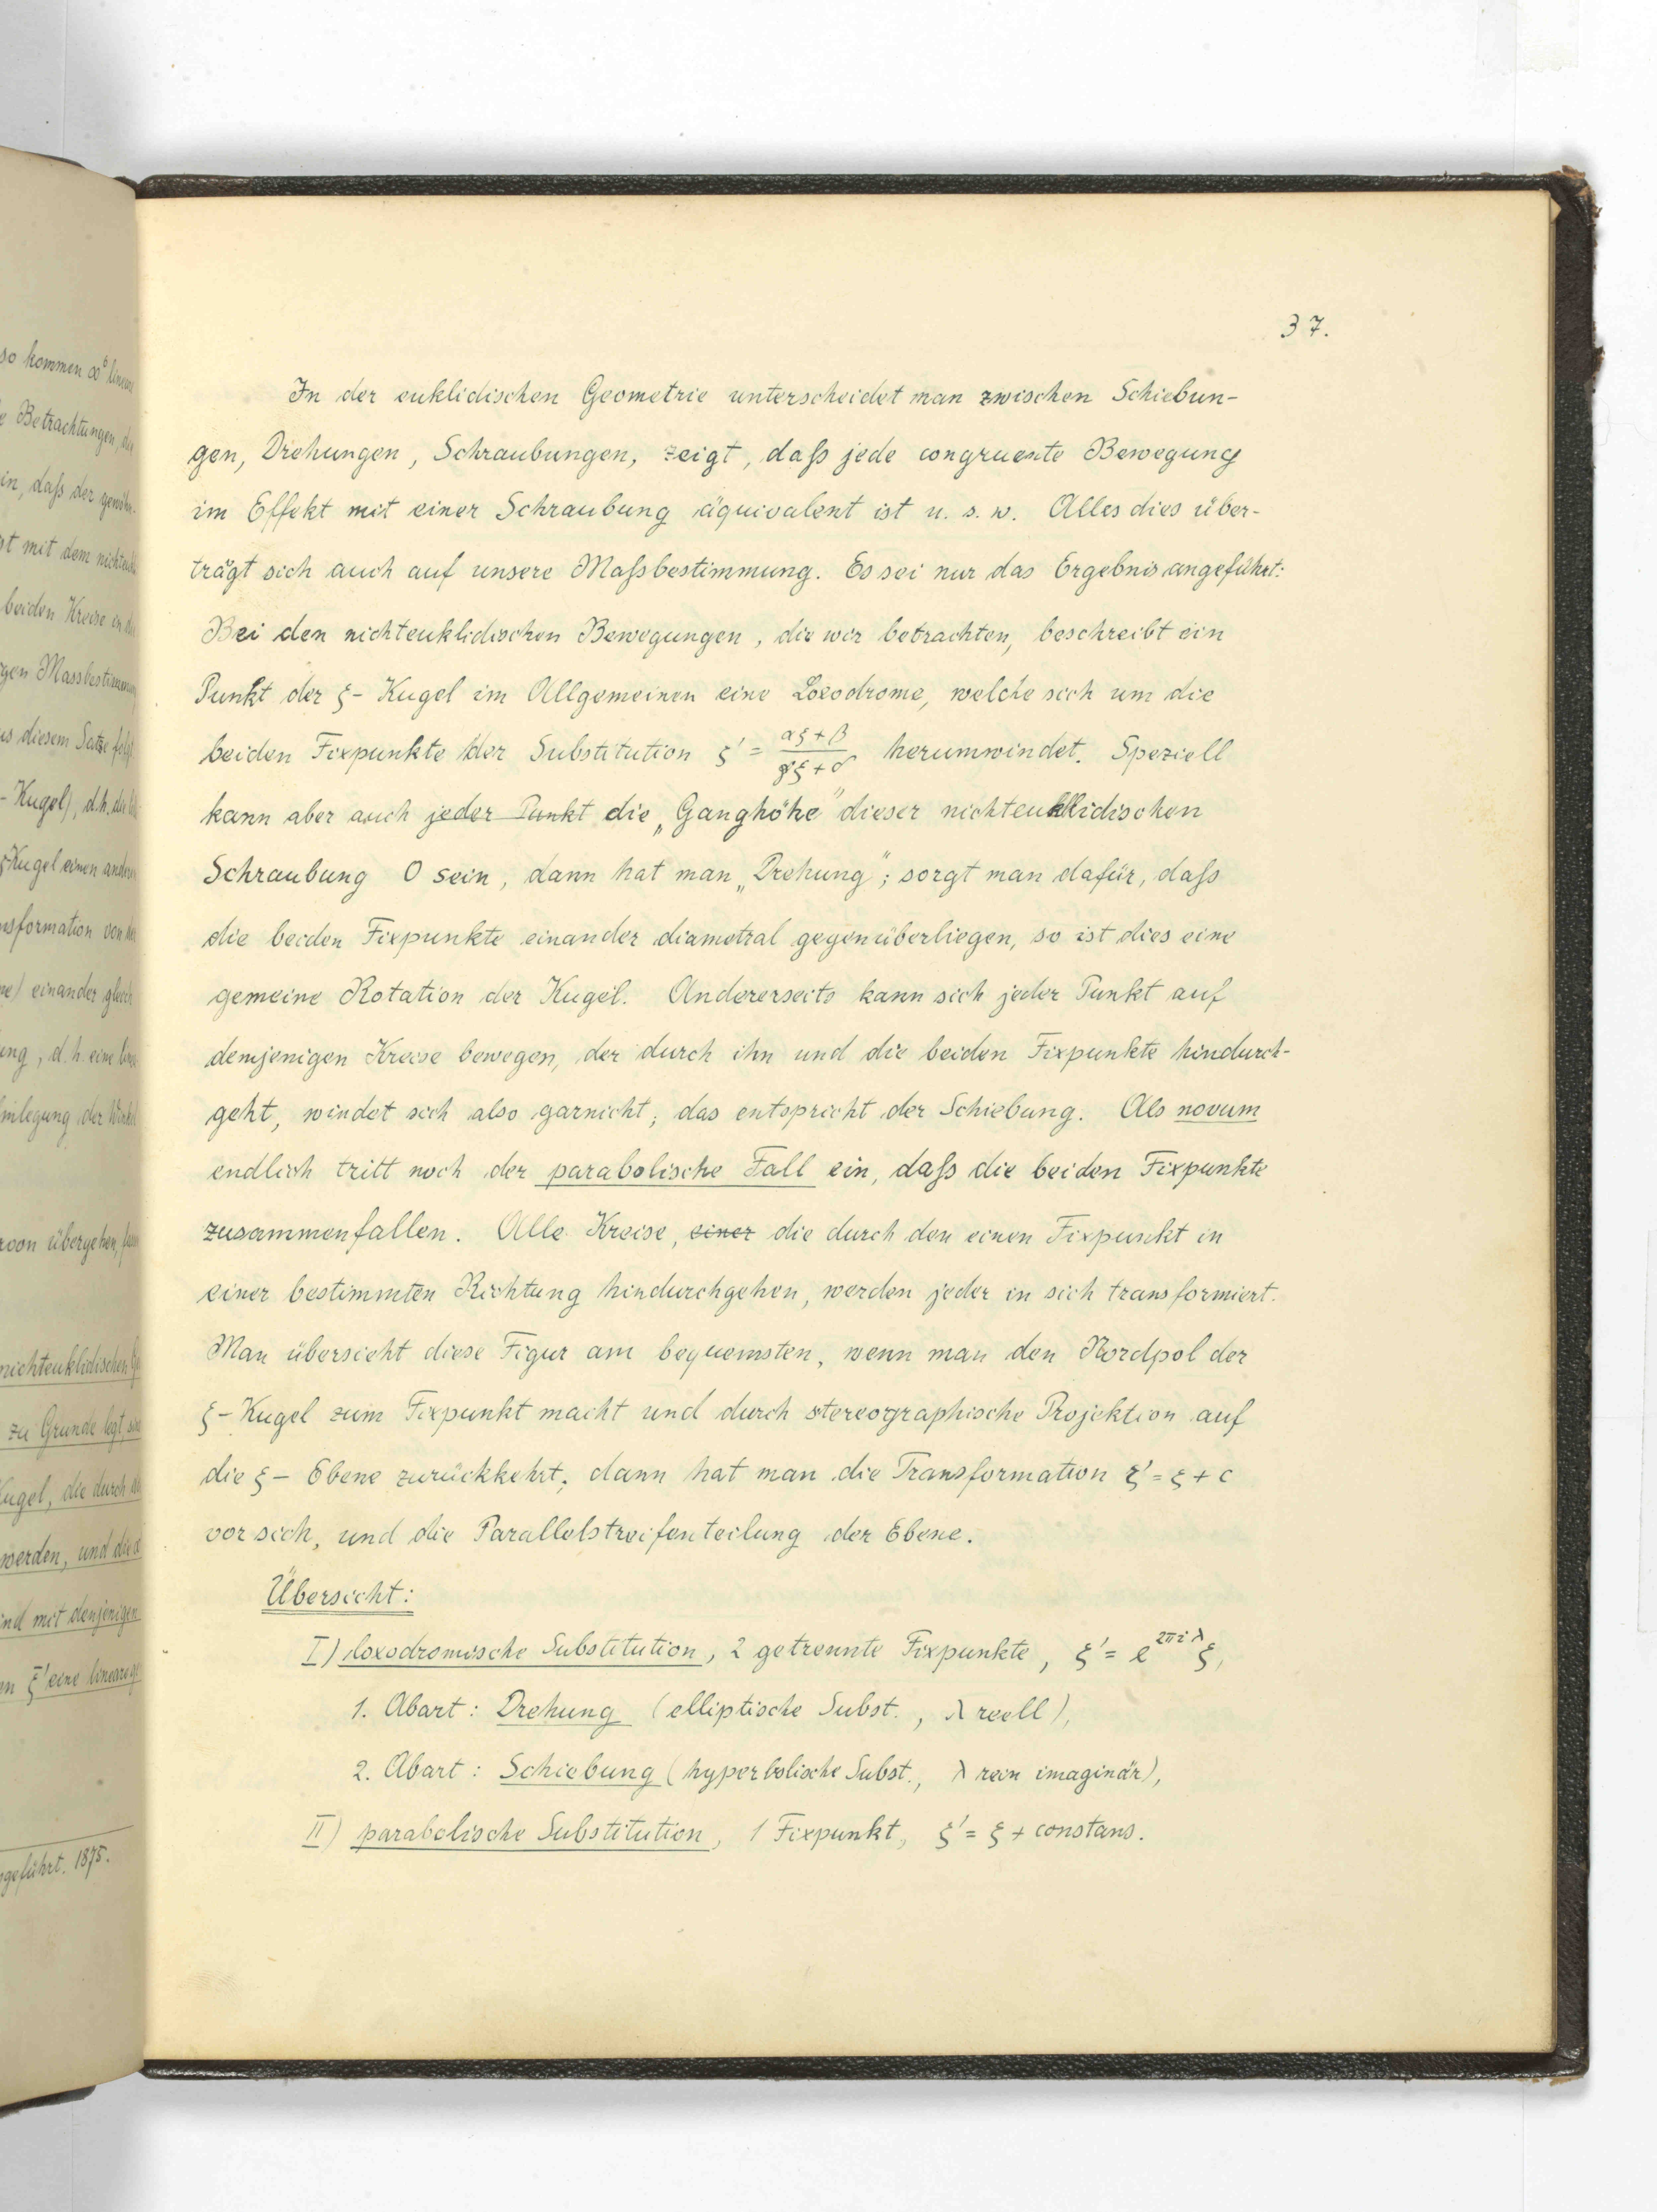 so kommen ∞⁶ linear
Betrachtungen, die
in, daſs der gewöhn-
mit dem nichteukl
beiden Kreise in d
gen Massbestimmung
us diesem Satze folgt
-Kugel), d.h. die
ξ-Kugel einen andern
nsformation von
einander gleich
ung, d.h. eine lin
inlegung der Winkel
übergehen,
nichteuklidischen
zu Grunde legt, sin
Kugel, die durch
werden, und die
ind mit denjenigen
ξ' eine lineare
geführt. 1875.
37.
In der euklidischen Geometrie unterscheidet man zwischen Schiebun-
gen, Drehungen, Schraubungen, zeigt, daſs jede congruente Bewegung
im Effekt mit einer Schraubung äquivalent ist u. s. w. Alles dies über-
trägt sich auch auf unsere Maſsbestimmung. Es sei nur das Ergebnis angeführt:
Bei den nichteuklidischen Bewegungen, die wir betrachten, beschreibt ein
Punkt der ξ-Kugel im Allgemeinen eine Loxodrome, welche sich um die
beiden Fixpunkte der Substitution ξ' = (αξ+β)/(γξ+δ) herumwindet. Speziell
kann aber auch jeder Punkt die „Ganghöhe" dieser nichteuklidischen
Schraubung 0 sein, dann hat man „Drehung"; sorgt man dafür, daſs
die beiden Fixpunkte einander diametral gegenüberliegen, so ist dies eine
gemeine Rotation der Kugel. Andererseits kann sich jeder Punkt auf
demjenigen Kreise bewegen, der durch ihn und die beiden Fixpunkte hindurch-
geht, windet sich also garnicht; das entspricht der Schiebung. Als novum
endlich tritt noch der parabolische Fall ein, daſs die beiden Fixpunkte
zusammenfallen. Alle Kreise, einer die durch den einen Fixpunkt in
einer bestimmten Richtung hindurchgehen, werden jeder in sich transformiert.
Man übersieht diese Figur am bequemsten, wenn man den Nordpol der
ξ-Kugel zum Fixpunkt macht und durch stereographische Projektion auf
die ξ-Ebene zurückkehrt; dann hat man die Transformation ξ' = ξ + c
vor sich, und die Parallelstreifenteilung der Ebene.
Übersicht:
I) loxodromische Substitution, 2 getrennte Fixpunkte, ξ' = e^{2πiλ} ξ,
1. Abart: Drehung (elliptische Subst., λ reell),
2. Abart: Schiebung (hyperbolische Subst., λ rein imaginär),
II) parabolische Substitution, 1 Fixpunkt, ξ' = ξ + constans.